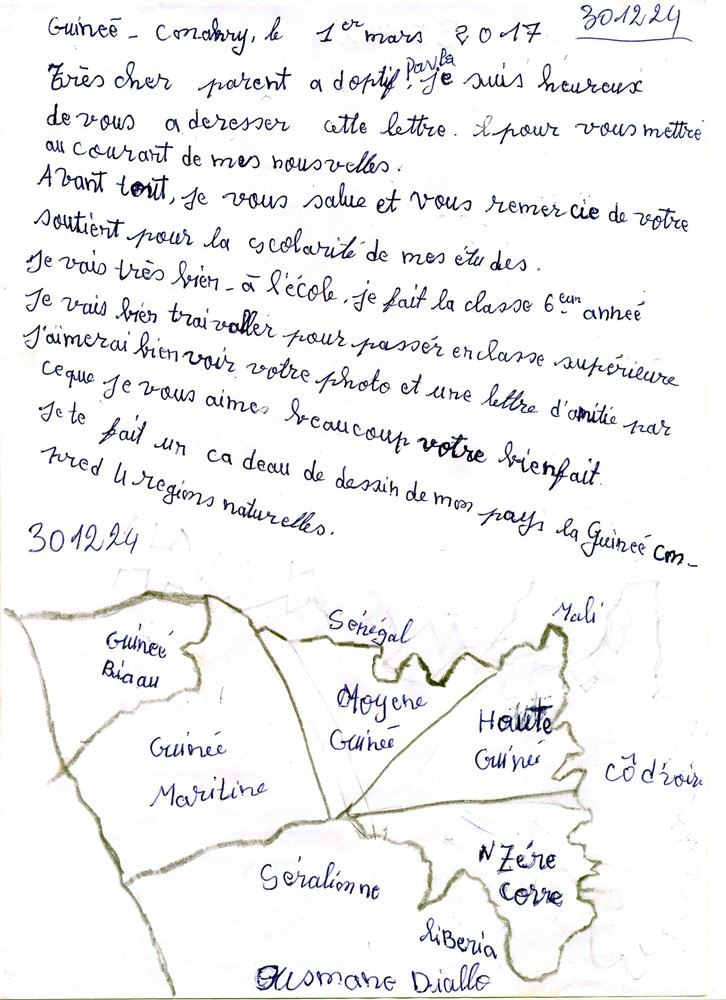 Guineé - Conakry, le 1er mars 2017
301224
Très cher parent adoptif. je suis heureux
de vous aderesser cette lettre. pour vous mettre
au courant de mes nousvelles.
Avant tout, je vous salue et vous remercie de votre
soutient pour la scolarité de mes études.
Je vais très bien - à l'école, je fait la classe 6eun anneé
Je vais bien traivaller pour passér en classe supérieure
J'aimerai bien voir votre photo et une lettre d'amitie par
ceque je vous aimes beaucoup votre bienfait.
Je te fait un cadeau de dessin de mon pays la Guineé Con-
pred 4 regions naturelles.
301224
Sénégal
Mali
Guineé
Biaau
Moyene
Guineé
Haute
Guineé
Guineé
Maritine
Cô d'voire
N'Zére
Corre
Séralionne
liBeria
Ousmane Diallo